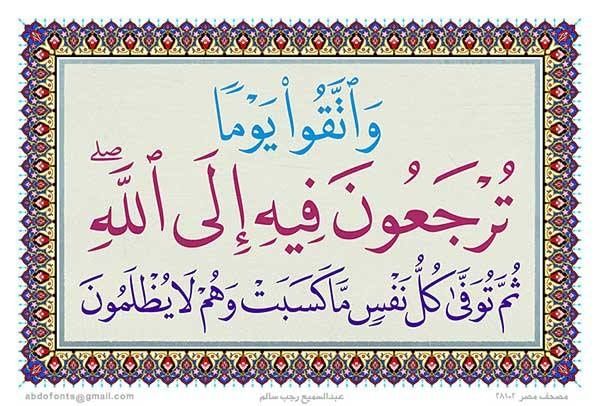 وَٱتَّقُوا۟ يَوْمًا
تُرْجَعُونَ فِيهِ إِلَى ٱللَّهِ ۖ
ثُمَّ تُوَفَّىٰ كُلُّ نَفْسٍ مَّا كَسَبَتْ وَهُمْ لَا يُظْلَمُونَ
مصحف مصر ٢٨١٠٢ عبدالسميع رجب سالم abdofonts@gmail.com